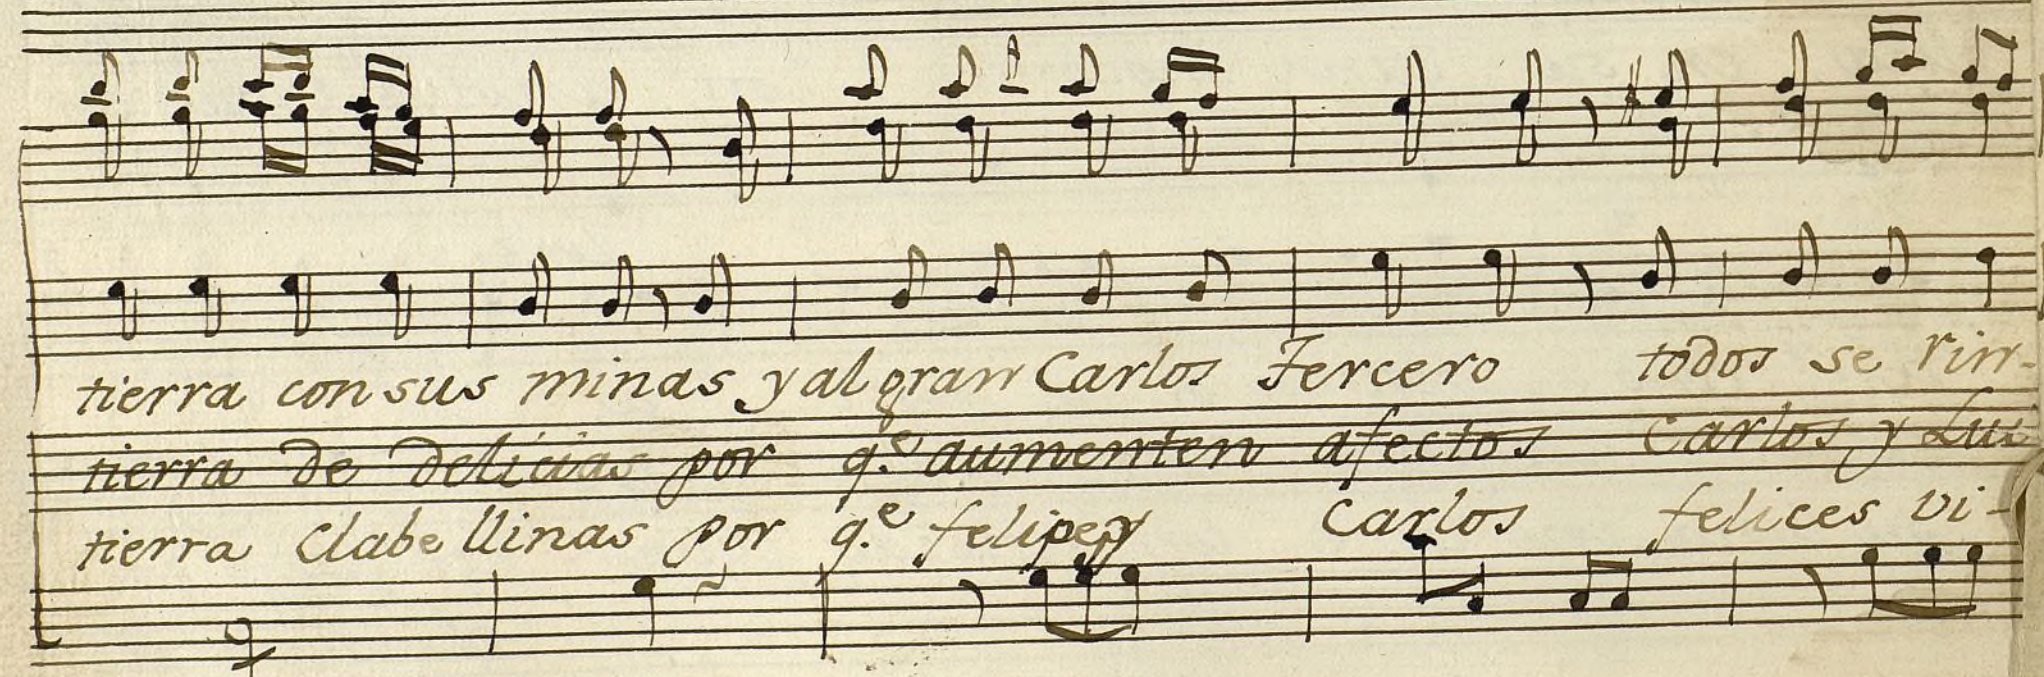 tierra con sus minas y al gran Carlos Tercero todos se rin-
tierra de delicias por q.e aumenten afectos Carlos y Lui
tierra Clabellinas por q.e felipe y Carlos felices vi-